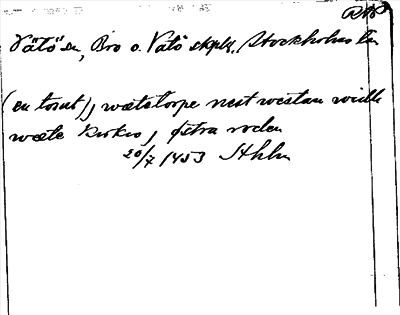 Vätö sn, Bro o. Vätö skplg, Stockholms län
(en tomt), watstorpe nest westan widh
wæte kirkio, östra roden
20/7 1453 Sthlm